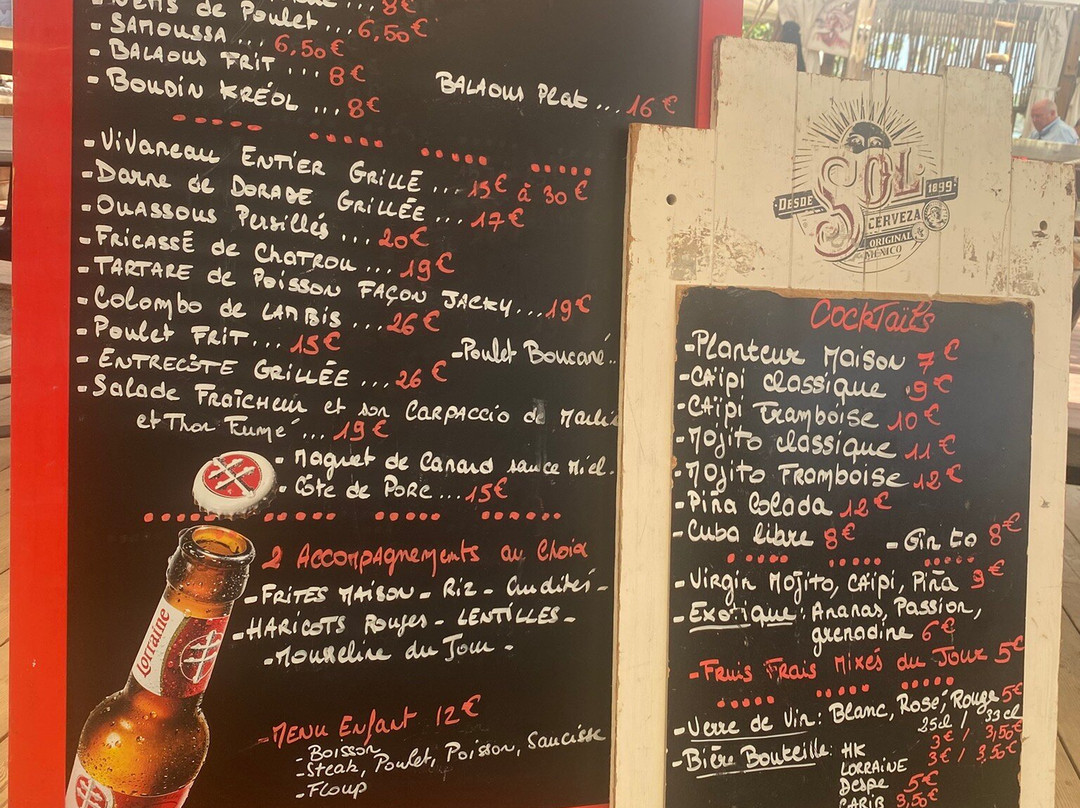 de Poulet ... 6,50€
- SAMOUSSA ... 6,50€
- BALAOUS FRIT ... 8€
- BOUDIN KRÉOL ... 8€
BALAOUS Plat ... 16€
- Vivaneau ENTIER GRILLÉ ... 15€ à 30€
- Darne de DORADE GRILLÉE ... 17€
- Ouassous Persillés ... 20€
- FRICASSÉ de CHATROU ... 19€
- TARTARE de Poisson FAÇON JACKY ... 19€
- Colombo de LAMBIS ... 26€
- Poulet FRIT ... 15€
- Poulet Boucané ..
- ENTRECÔTE GRILLÉE ... 26€
- Salade FRAÎCHEUR et son CARPACCIO de
et Thon Fumé ... 19€
- Magret de Canard sauce Miel.
- Côte de Porc ... 15€
2 Accompagnements au Choix
- FRITES MAISON - Riz - Crudités -
- HARICOTS Rouges - LENTILLES -
- Mousseline du Jour -
- MENU ENFANT 12€
- Boisson
- Steak, Poulet, Poisson, Saucisse
- Floup
Lorraine
SOL
DESDE 1899
CERVEZA
ORIGINAL
MÉXICO
COCKTAILS
- Planteur Maison 7€
- CAïpi classique 9€
- CAïpi Framboise 10€
- Mojito classique 11€
- Mojito Framboise 12€
- Piña Colada 12€
- Cuba libre 8€ - Gin to 8€
- Virgin Mojito, CAïpi, Piña 9€
- Exotique : Ananas, Passion,
grenadine 6€
- Fruis Frais Mixés du Jour 5€
- Verre de Vin : Blanc, Rosé, Rouge 5€
25cl / 33cl
- Bière Bouteille : HK 3€ / 3,50€
LORRAINE 3€ / 3,50€
Despe 5€
CARIB 3,50€